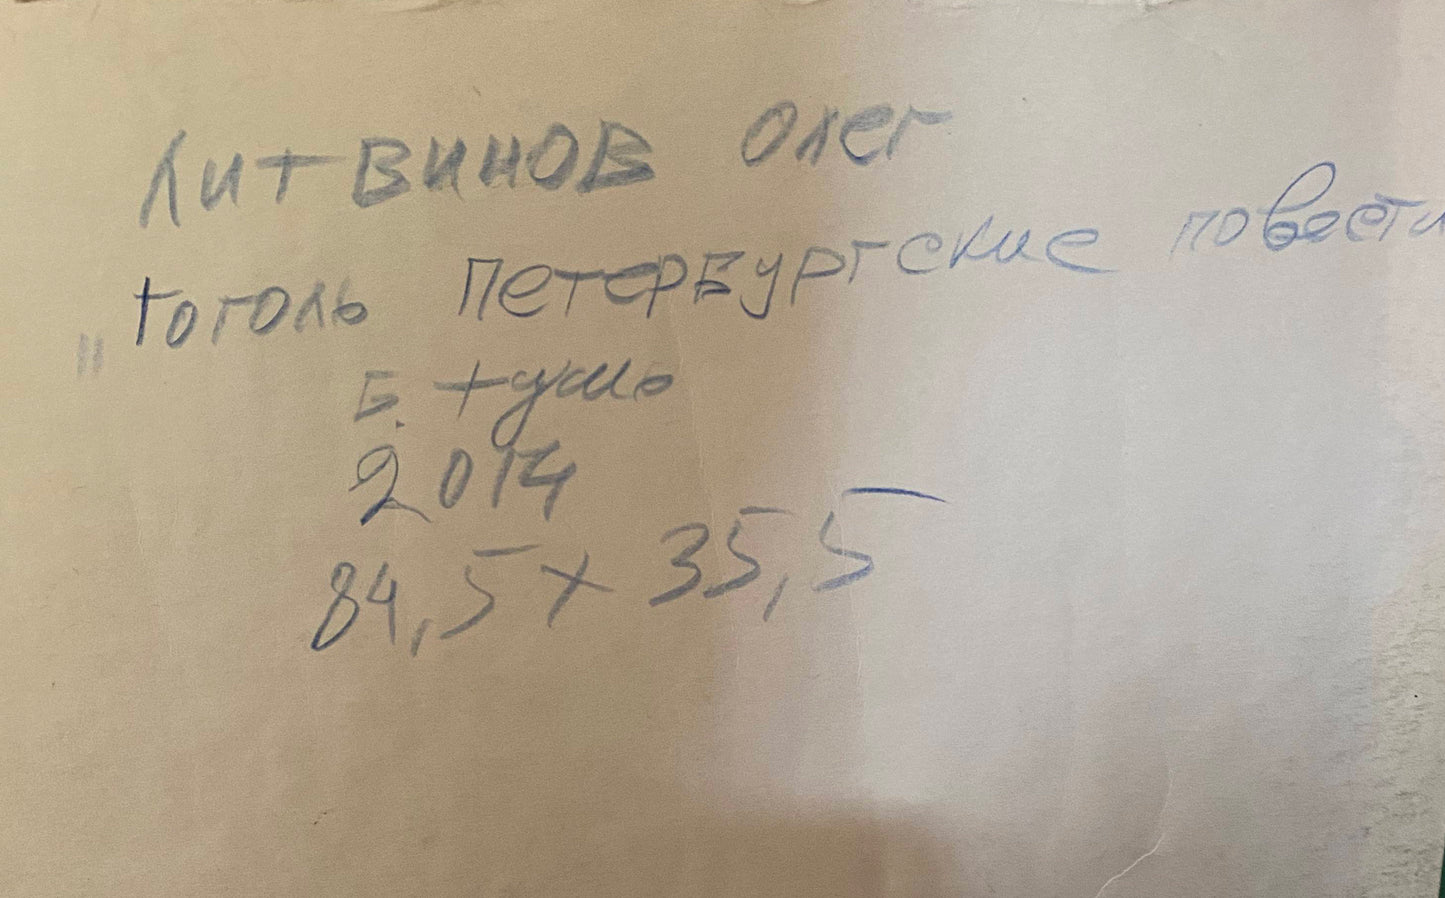 Литвинов Олег
"Гоголь Петербургские повести
Б. тушь
2014
84,5 x 35,5